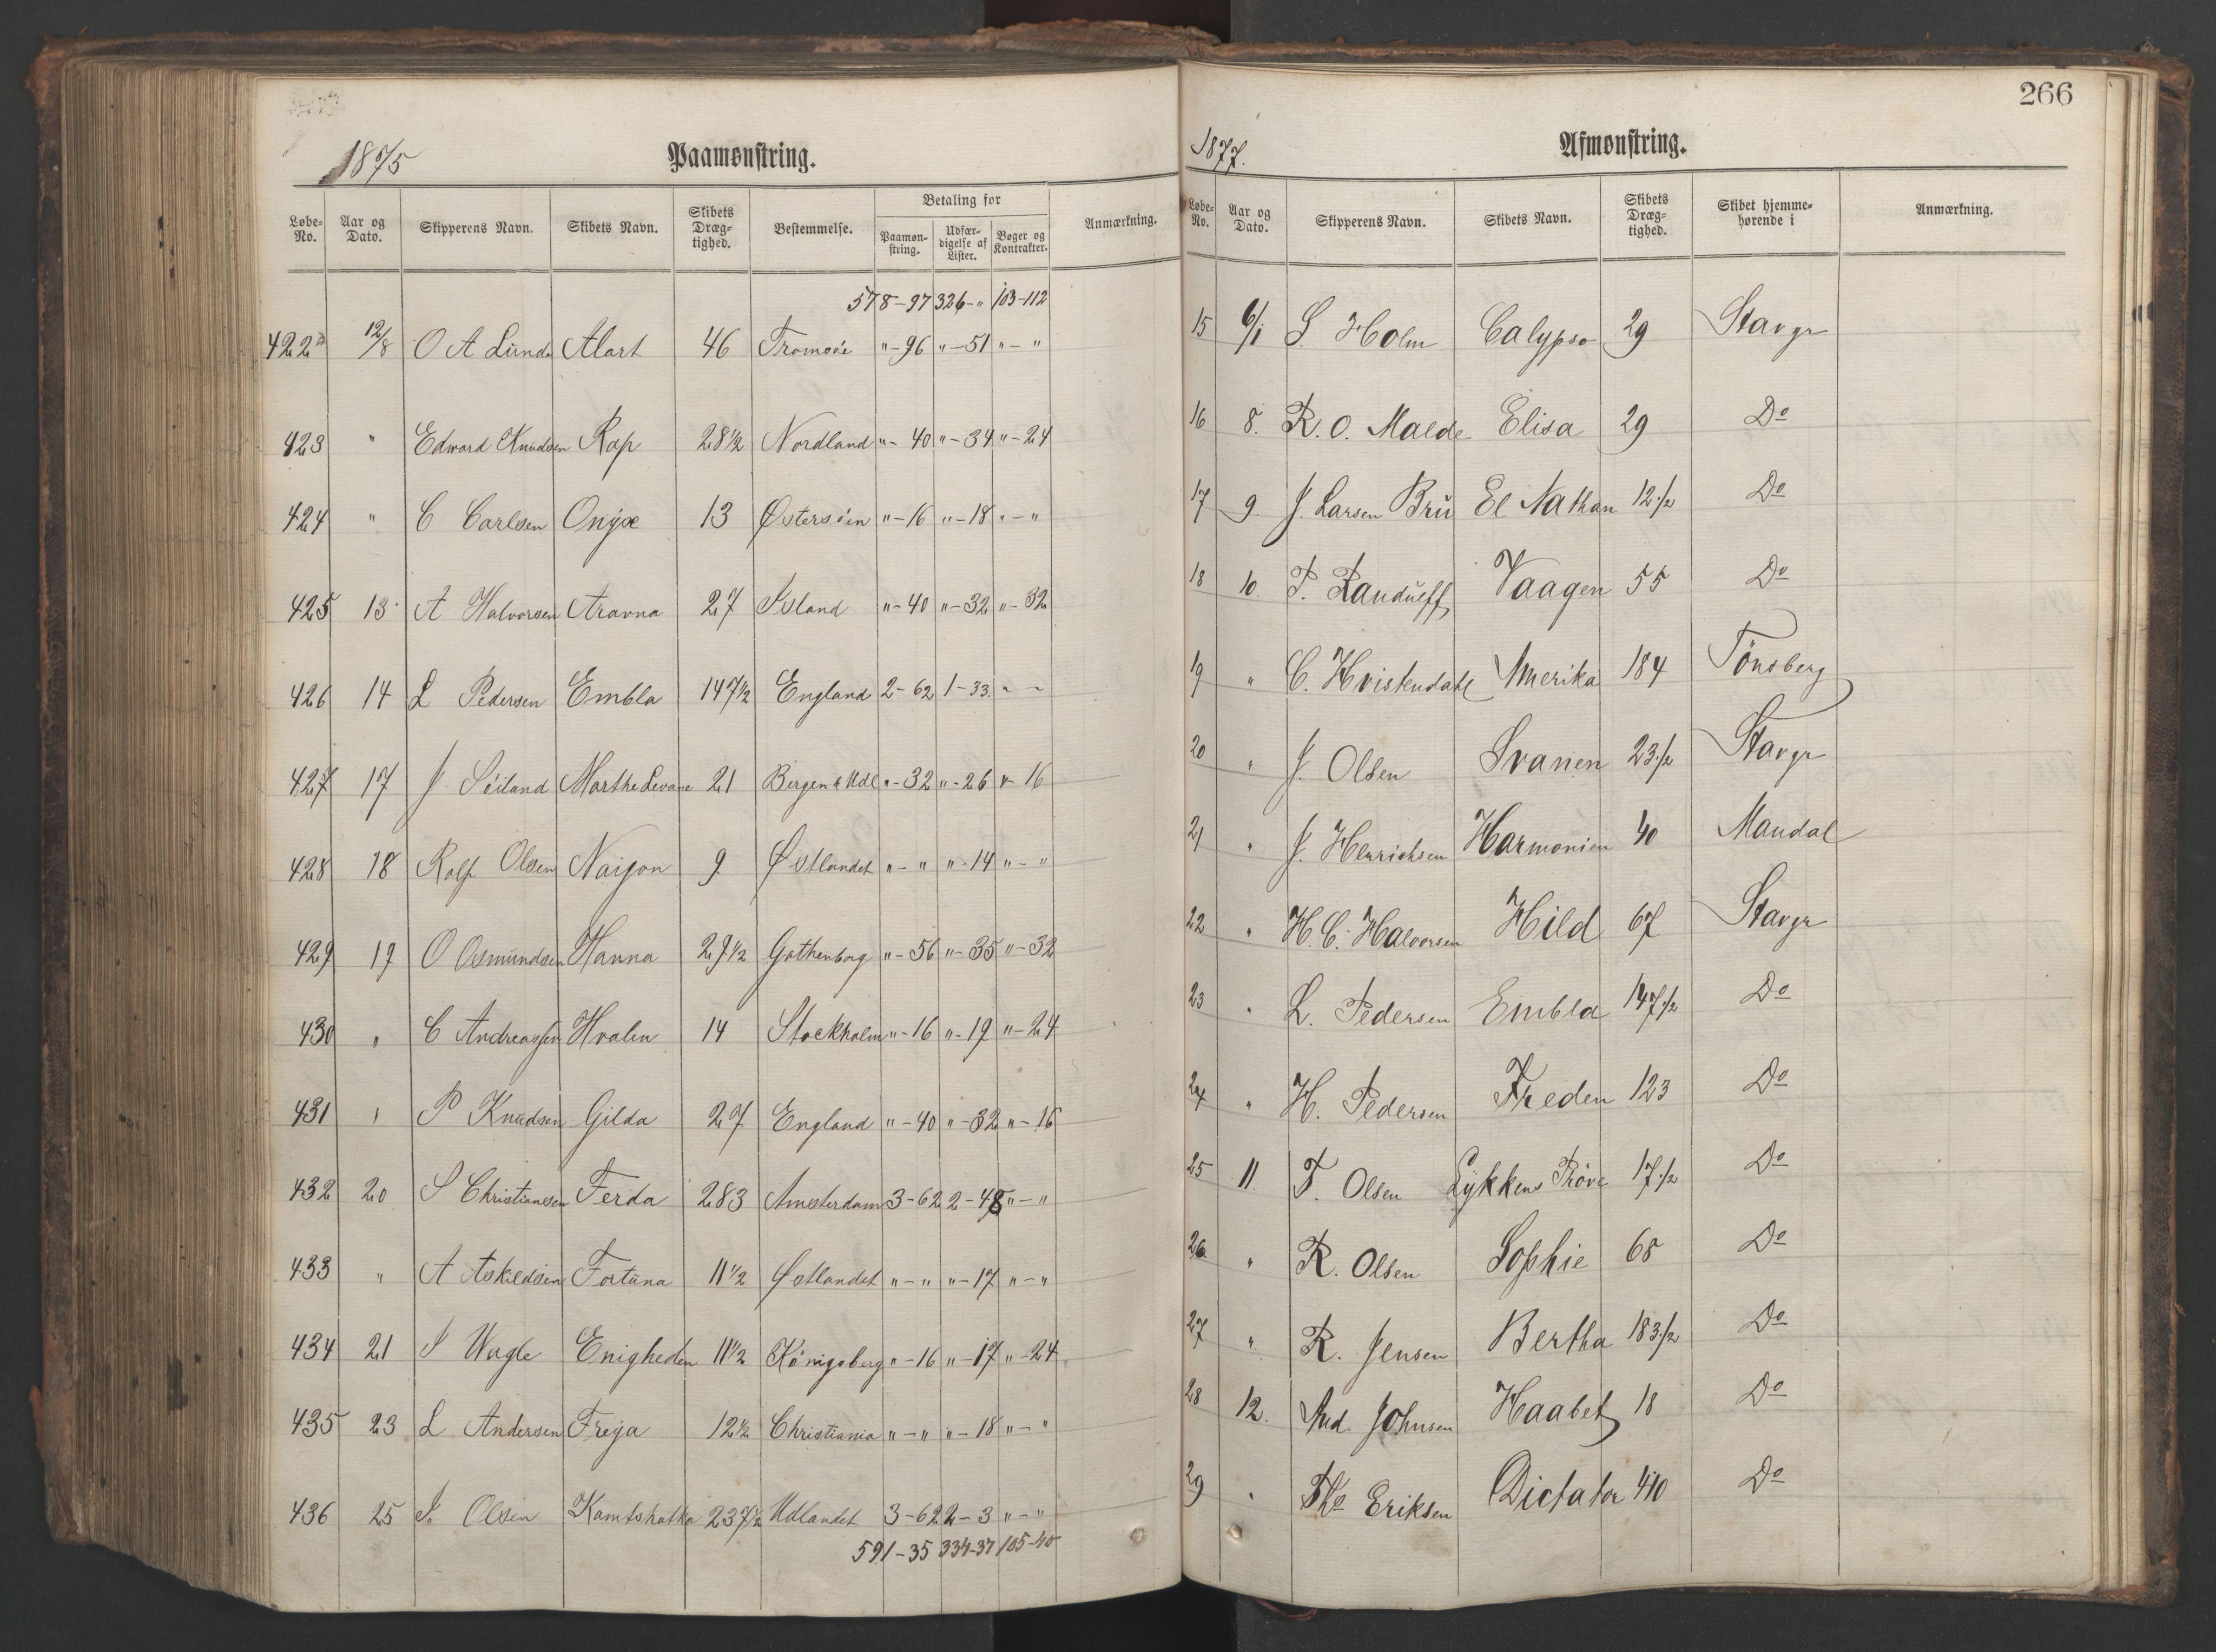 1875
Paamønstring.
Løbe-No. Aar og Dato. Skipperens Navn. Skibets Navn. Skibets Dræg-tighed. Bestemmelse. Betaling for Paamøn-string. Udfær-digelse af Lister. Bøger og Kontrakter. Anmærkning.
578-97 326-" 103-112
422 12/8 O A Lunde Alart 46 Tromsøe "-96 "-51 "-"
423 " Edward Knudsen Rap 28 1/2 Nordland "-40 "-34 "-24
424 " C Carlsen Onyx 13 Østersöen "-16 "-18 "-"
425 13 A Halvorsen Aravna 27 Island "-40 "-32 "-32
426 14 L Pedersen Embla 147 1/2 England 2-62 1-33 "-"
427 17 J Söiland Marthe Levane 21 Bergen & Udl "-32 "-26 "-16
428 18 Rolf Olsen Naijon 9 Østlandet "-" "-14 "-"
429 19 O Osmundsen Hanna 29 1/2 Gothenborg "-56 "-35 "-32
430 " C Andreassen Hvalen 14 Stockholm "-16 "-19 "-24
431 " P Knudsen Gilda 27 England "-40 "-32 "-16
432 20 S Christiansen Ferda 283 Amsterdam 3-62 2-48 "-"
433 " A Askildsen Fortuna 11 1/2 Østlandet "-" "-17 "-"
434 21 S Wagle Enigheden 11 1/2 Königsberg "-16 "-17 "-24
435 23 L Andersen Freja 12 1/2 Christiania "-" "-18 "-"
436 25 S. Olsen Kamtshatka 237 1/2 Udlandet 3-62 2-3 "-"
591-35 334-37 105-40
266
1877.
Afmønstring.
Løbe-No. Aar og Dato. Skipperens Navn. Skibets Navn. Skibets Dræg-tighed. Skibet hjemme-hørende i Anmærkning.
15 6/1 S. Holm Calypso 29 Stavgr
16 8. R. O. Malde Elisa 29 Do
17 9 J. Larsen Brü El Nathan 12 1/2 Do
18 10. P. Randulff Vaagen 55 Do
19 " C. Hvistendahl Amerika 184 Tönsberg
20 " J. Olsen Svanen 23 1/2 Stavgr
21 " J. Henrichsen Harmonien 40 Mandal
22 " H. C. Halvorsen Hild 67 Stavgr
23 " L. Pedersen Embla 147 1/2 Do
24 " H. Pedersen Freden 123 Do
25 11. T. Olsen Lykkens Pröve 17 1/2 Do
26. " R. Olsen Sophie 68 Do
27 " R. Jensen Bertha 183 1/2 Do
28 12. And. Johnsen Haabet 18 Do
29 " Tho Eriksen Dictator 410 Do